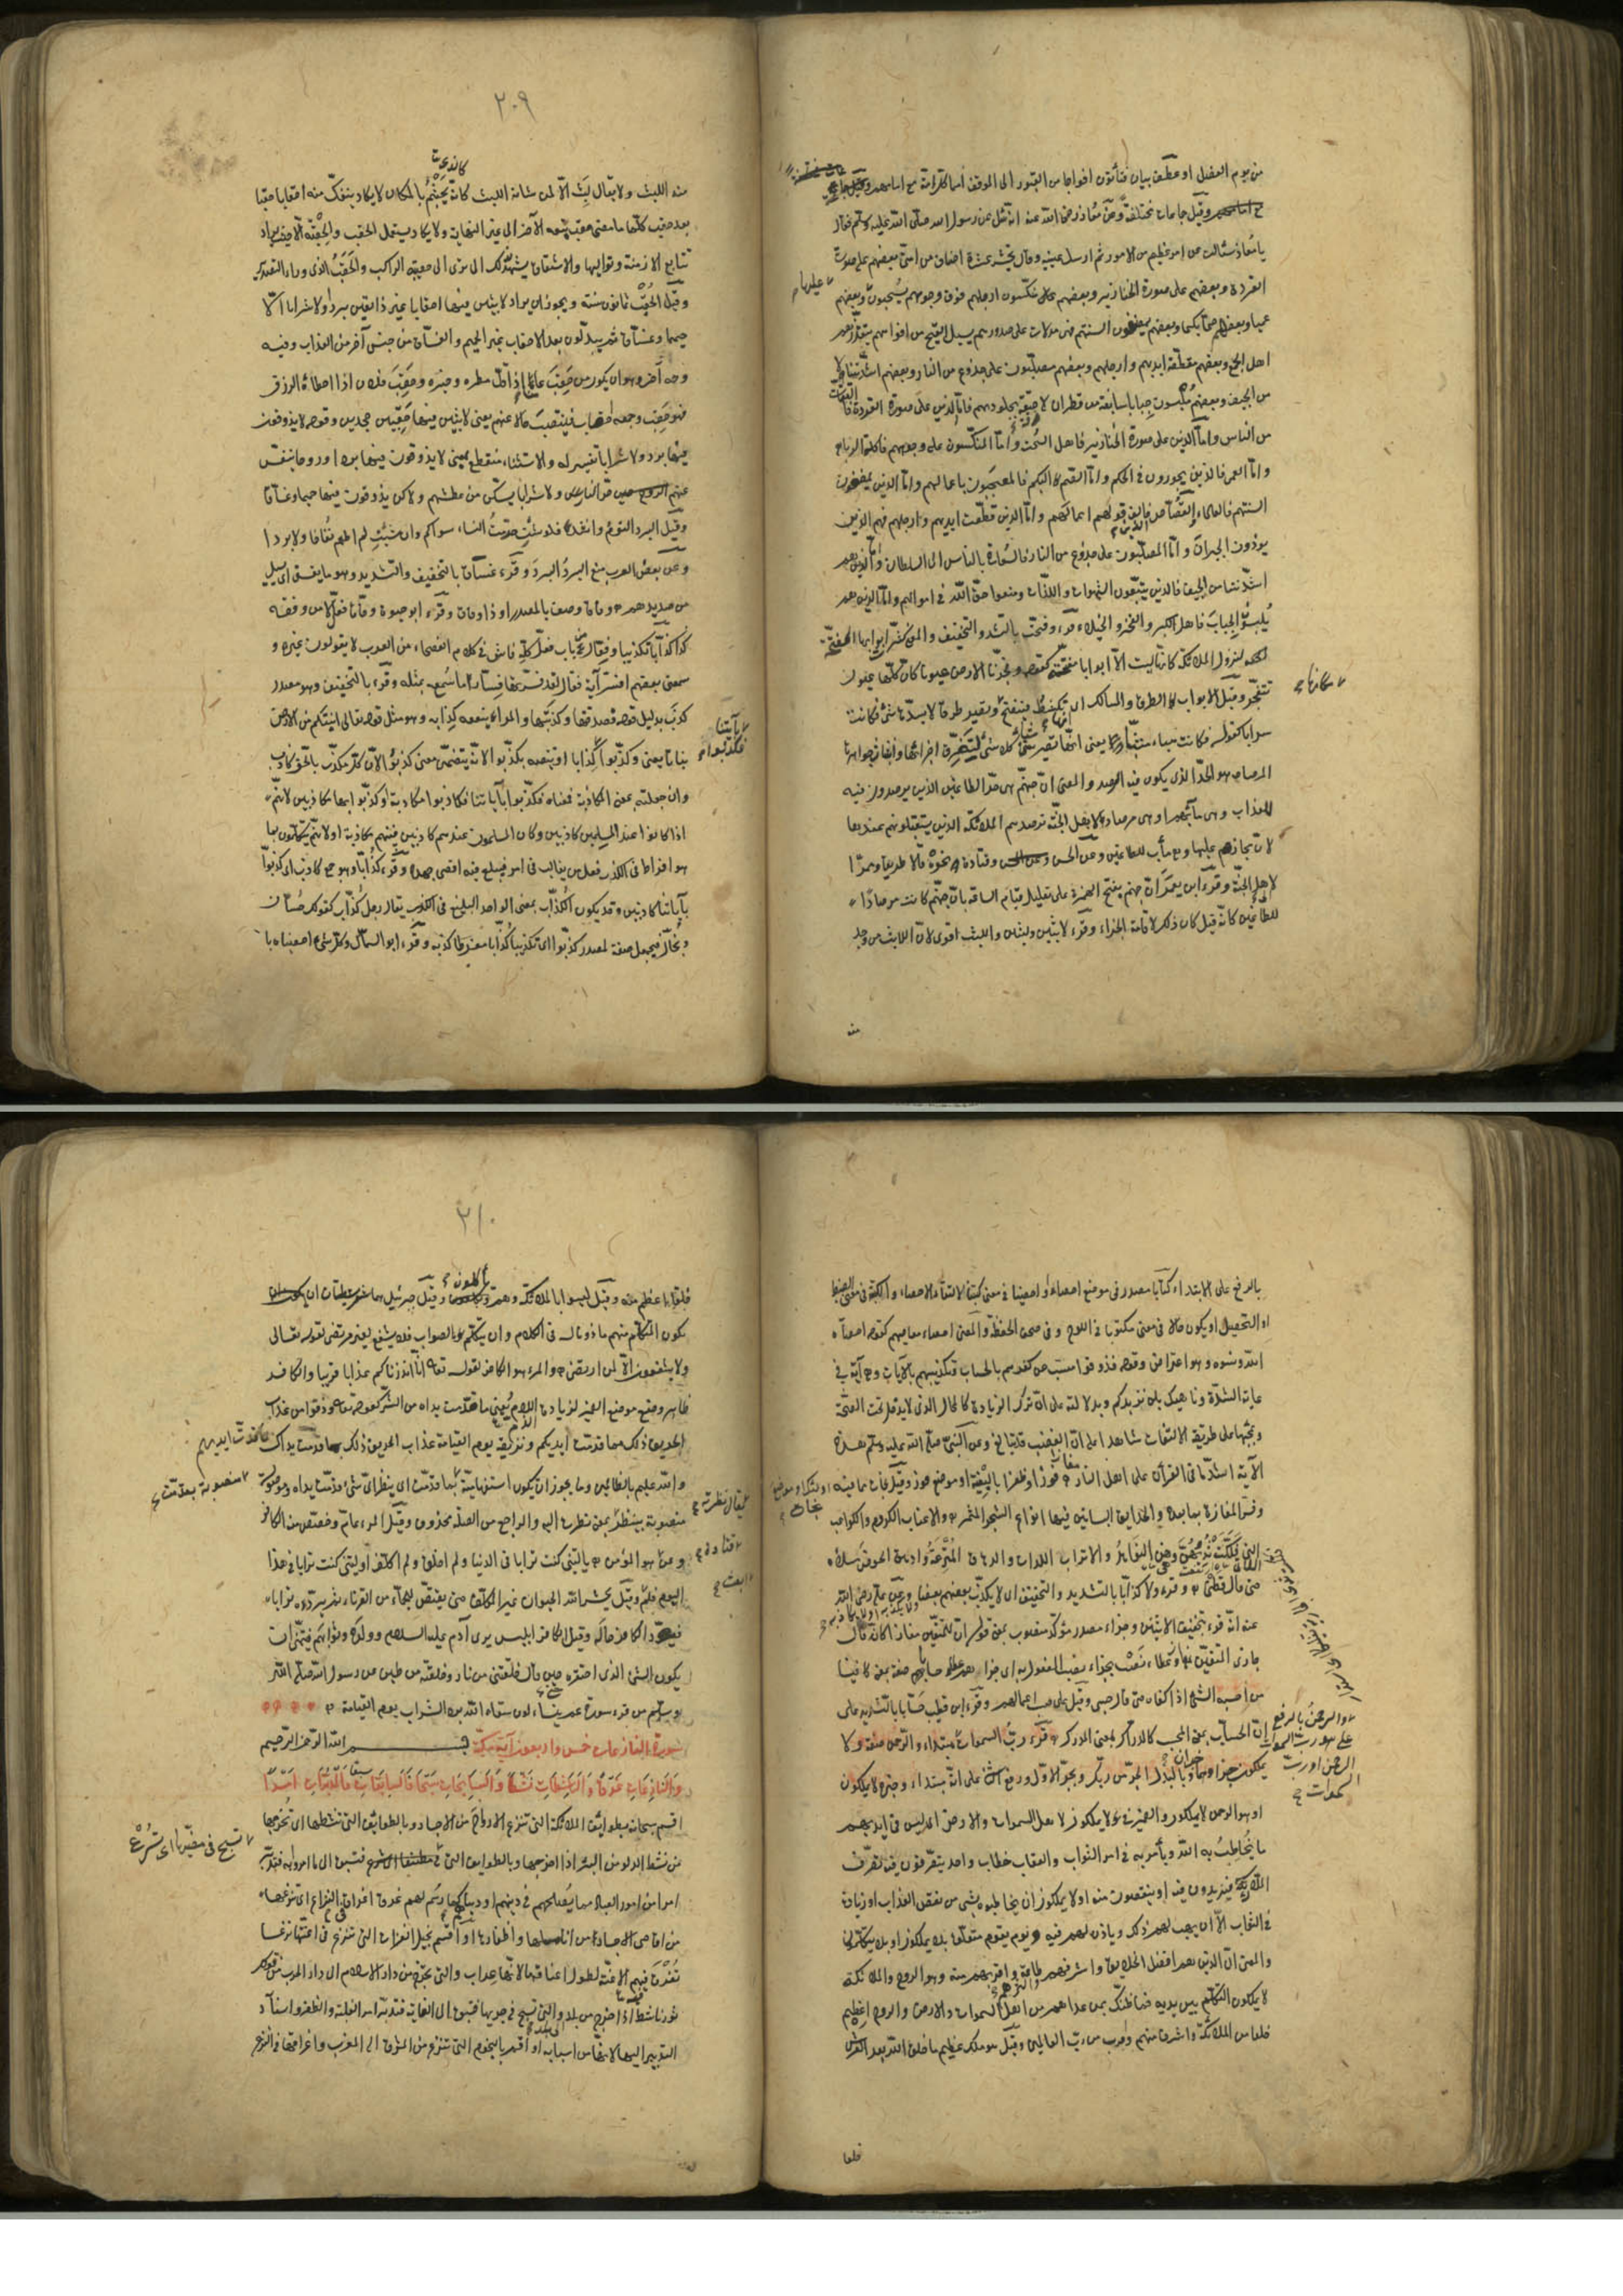 من يوم الفصل او عطف بيان فتأتون افواجا من القبور الى الموقف امما كل امة مع امامهم
وقيل جماعات مختلفة وعن معاذ رضى الله عنه انه سئل عن رسول الله صلى الله عليه وسلم فقال
يا معاذ سئالت عن امر عظيم من الامور ثم ارسل عينيه وقال يحشر عشرة اصناف من امتى بعضهم على صورة
القردة وبعضهم على صورة الخنازير وبعضهم منكسون ارجلهم فوق وجوههم يسحبون وبعضهم
عليها
عميا وبعضهم صما بكما وبعضهم يمضغون السنتهم فهى مدلات على صدورهم يسيل القيح من افواههم يتقذرهم
اهل الجمع وبعضهم مقطعة ايديهم وارجلهم وبعضهم مصلبون على جذوع من النار وبعضهم اشد نتنا
من الجيف وبعضهم ملبسون جبابا سابغة من قطران لازقة بجلودهم فاما الذين على صورة القردة فالقتات
من الناس واما الذين على صورة الخنازير فاهل السحت واما المنكسون على وجوههم فاكلة الربا
واما العمى فالذين يجورون فى الحكم واما الصم البكم فالمعجبون باعمالهم واما الذين يمضغون
السنتهم فالعلماء والقصاص الذين خالف قولهم اعمالهم واما الذين قطعت ايديهم وارجلهم فهم الذين
يوذون الجيران واما المصلبون على جذوع من النار فالسعاة بالناس الى السلطان واما الذين هم
اشد نتنا من الجيف فالذين يتبعون الشهوات واللذات ومنعوا حق الله فى اموالهم واما الذين هم
يلبسون الجباب فاهل الكبر والفخر والخيلاء وقرء وفتحت بالتشديد والتخفيف والمعنى كثر ابوابها المفتحة
لنزول الملائكة كانها ليست الا ابوابا مفتحة كقوله وفجرنا الارض عيونا كان كلها عيون
تتفجر وقيل الابواب الطرق والمسالك اى تكشط فينفتح مكانها وتصير طرقا لا يسدها شئ فكانت
سرابا كقوله فكانت هباء منبثا يعنى انها تصير شيئا كلا شئ لتفرق اجزائها وانبثاث جواهرها
المرصاد هو الحد الذى يكون فيه الرصد والمعنى ان جهنم هى حد الطاغين الذين يرصدون فيه
للعذاب وهى مآبهم او هى مرصاد لاهل الجنة ترصدهم الملائكة الذين يستقبلونهم عندها
لان مجازهم عليها وهى مآب للطاغين وعن الحسن وقتادة نحوه قالا طريقا وممرا
لاهل الجنة وقرء ابن يعمر ان جهنم بفتح الهمزة على تعليل قيام الساعة بان جهنم كانت مرصادا
للطاغين كانه قيل كان ذلك لاقامة الجزاء وقرء لابثين ولبثين واللبث اقوى لان اللابث من وجد
منه
٢٠٩
منه اللبث ولا يقال لبث الا لمن شانه اللبث كالذى يجثم بالمكان لا يكاد ينفك منه احقابا حقبا
بعد حقب كلما مضى حقب تبعه الآخر الى غير النهاية ولا يكاد يستعمل الحقب والحقبة الا حيث يراد
تتابع الازمنة وتواليها والاشتقاق يشهد لذلك الا ترى الى حقيبة الراكب والحقب الذى وراء التصدير
وقيل الحقب ثمانون سنة ويجوز ان يراد لابثين فيها احقابا غير ذائقين بردا ولا شرابا الا
حميما وغساقا ثم يبدلون بعد الاحقاب غير الحميم والغساق من جنس آخر من العذاب وفيه
وجه آخر وهو ان يكون من حقب عامنا اذا قل مطره وخيره وحقب فلان اذا اخطاه الرزق
فهو حقب وجمعه احقاب فينتصب حالا عنهم يعنى لابثين فيها حقبين جحدين وقوله لا يذوقون
فيها بردا ولا شرابا تفسير له والاستثناء منقطع يعنى لا يذوقون فيها بردا وروحا ينفس
عنهم حر النار ولا شرابا يسكن من عطشهم ولكن يذوقون فيها حميما وغساقا
وقيل البرد النوم وانشد فلو شئت حرمت النساء سواكم وان شئت لم اطعم نقاخا ولا بردا
وعن بعض العرب منع البرد البرد وقرء غساقا بالتخفيف والتشديد وهو ما يغسق اى يسيل
من صديدهم وفاقا وصف بالمصدر او ذا وفاق وقرء ابو حيوة وفاقا فعال من وفقه
كذا كذابا تكذيبا وفعال فى باب فعل كله فاش فى كلام الفصحاء من العرب لا يقولون غيره و
سمعنى بعضهم افسر آية فقال لقد فسرتها فسارا ما سمع بمثله وقرء بالتخفيف وهو مصدر
كذب بدليل قوله فصدقتها وكذبتها والمرء ينفعه كذابه وهو مثل قوله تعالى انبتكم من الارض
بآياتنا فكذبوا
نباتا يعنى وكذبوا كذابا او تنصبه بكذبوا لانه يتضمن معنى كذبوا لان كل مكذب بالحق كاذب
وان جعلته بمعنى المكاذبة فمعناه فكذبوا بآياتنا فكاذبوا مكاذبة او كذبوا بها مكاذبين لانهم
اذا كانوا عند المسلمين كاذبين وكان المسلمون عندهم كاذبين فبينهم مكاذبة او لانهم يتكلمون بما
هو افراط فى الكذب فعل من يغالب فى امر فيبلغ فيه اقصى جهده وقرء كذابا وهو جمع كاذب اى كذبوا
بآياتنا كاذبين وقد يكون الكذاب بمعنى الواحد البليغ فى الكذب يقال رجل كذاب كقولك حسان
وبخال فيجعل صفة لمصدر كذبوا اى تكذيبا كذابا مفرطا كذبه وقرء ابو السمال وكل شئ احصيناه
بالرفع على الابتداء كتابا مصدر فى موضع احصاء او احصينا فى معنى كتبنا لالتقاء الاحصاء والكتبة فى معنى الضبط
او التحصيل او يكون حالا فى معنى مكتوبا فى اللوح وفى صحف الحفظة والمعنى احصاء معاصيهم كقوله احصاه
الله ونسوه وهو اعتراض وقوله فذوقوا مسبب عن كفرهم بالحساب وتكذيبهم بالآيات وهى آية فى
غاية الشدة وناهيك بلن نزيدكم وبدلالته على ان ترك الزيادة كالمحال الذى لا يدخل تحت الصحة
وبمجيئها على طريقة الالتفات شاهدا على ان الغضب قد تبالغ وعن النبى صلى الله عليه وسلم هذه
الآية اشد ما فى القرآن على اهل النار مفازا فوزا وظفرا بالبغية او موضع فوز وقيل نجاة مما فيه
وفسر المفازة بما بعده والحدائق البساتين فيها انواع الشجر المثمر والاعناب الكروم والكواعب
اللاتى فلكت ثديهن وهن النواهد والاتراب اللدات والدهاق المترعة وادهق الحوض ملأه
حتى قال قطنى وقرء ولا كذابا بالتشديد والتخفيف اى لا يكذب بعضهم بعضا وعن على رضى الله
عنه انه قرء بتخفيف الاثنين وجزاء مصدر مؤكد منصوب بمعنى قوله ان للمتقين مفازا كانه قال
جازى المتقين بمفاز وعطاء نصب بجزاء نصب المفعول به اى جزاهم عطاء حسابا صفة بمعنى كافيا
من احسبه الشئ اذا كفاه حتى قال حسبى وقيل على حسب اعمالهم وقرء ابن قطيب حسابا بالتشديد على
ان الحساب بمعنى المحسب كالدراك بمعنى المدرك وقرء رب السموات مبتداء والرحمن صفة ولا
والرحمن بالرفع
يملكون خبر او هما خبران وبالجر على البدل من ربك وبجر الاول ورفع الثانى على انه مبتداء وخبره لا يملكون
او هو الرحمن لا يملكون والضمير فى لا يملكون لاهل السموات والارض اى ليس فى ايديهم
ما يخاطب به الله ويأمر به فى امر الثواب والعقاب خطاب واحد يتصرفون فيه تصرف
الملاك فيزيدون فيه او ينقصون منه او لا يملكون ان يخاطبوه بشئ من نقص العذاب او زيادة
فى الثواب الا ان يهب لهم ذلك وياذن لهم فيه ويوم يقوم متعلق بلا يملكون او بلا يتكلمون
والمعنى ان الذين هم افضل الخلائق واشرفهم واكثرهم طاعة واقربهم منه وهو الروح والملائكة
لا يملكون التكلم بين يديه فما ظنك بمن عداهم من اهل السموات والارض والروح اعظم
خلقا من الملائكة واشرف منهم واقرب من رب العالمين وقيل هو ملك عظيم ما خلق الله بعد العرش
خلقا
٢١٠
خلقا اعظم منه وقيل ليسوا بالملائكة وهم يأكلون وقيل جبرئيل هما شريطتان ان
يكون المتكلم منهم ماذونا له فى الكلام وان يتكلم بالصواب فلا يشفع لغير مرتضى لقوله تعالى
ولا يشفعون الا لمن ارتضى والمرء هو الكافر لقوله تعالى انا انذرناكم عذابا قريبا والكافر
ظاهر وضع موضع الضمير لزيادة الذم ويعنى ما قدمت يداه من الشر كقوله تعالى وذوقوا عذاب
الحريق ذلك بما قدمت ايديكم ونذيقه يوم القيامة عذاب الحريق ذلك بما قدمت يداك بما قدمت ايديهم
والله عليم بالظالمين وما يجوز ان يكون استفهامية منصوبة بقدمت اى ينظر اى شئ قدمت يداه وموصولة
منصوبة بينظر يقال نظرته بمعنى نظرت اليه والراجع من الصلة محذوف وقيل المرء عام وخصص منه الكافر
وعن قتادة هو المؤمن يا ليتنى كنت ترابا فى الدنيا ولم اخلق ولم اكلف او ليتنى كنت ترابا فى هذا
اليوم فلم ابعث وقيل يحشر الله الحيوان غير المكلف حتى يقتص للجماء من القرناء ثم يرده ترابا
فيود الكافر حاله وقيل الكافر ابليس يرى آدم عليه السلام وولده وثوابهم فيتمنى ان
يكون الشئ الذى احتقره حين قال خلقتنى من نار وخلقته من طين عن رسول الله صلى الله
وسلم من قرء سورة عم يتساءلون سقاه الله برد الشراب يوم القيامة
سورة النازعات خمس واربعون آية مكية بسم الله الرحمن الرحيم
والنازعات غرقا والناشطات نشطا والسابحات سبحا فالسابقات سبقا فالمدبرات امرا
اقسم سبحانه بطوائف الملائكة التى تنزع الارواح من الاجساد وبالطوائف التى تنشطها اى تخرجها
من نشط الدلو من البئر اذا اخرجها وبالطوائف التى تسبح فى مضيها اى تسرع فتسبق الى ما امروا به فتدبر
امرا من امور العباد مما يصلحهم فى دينهم او دنياهم كما رسم لهم غرقا اغراقا فى النزع اى تنزعها
من اقاصى الاجساد من اناملها واظفارها او اقسم بخيل الغزاة التى تنزع فى اعنتها نزعا
تغرق فيه الاعنة لطول اعناقها لانها عراب والتى تخرج من دار الاسلام الى دار الحرب من قولك
ثور ناشط اذا خرج من بلد الى بلد والتى تسبح فى جريها فتسبق الى الغاية فتدبر امر الغلبة والظفر واسناد
التدبير اليها لانها من اسبابه او اقسم بالنجوم التى تنزع من المشرق الى المغرب واغراقها فى النزع